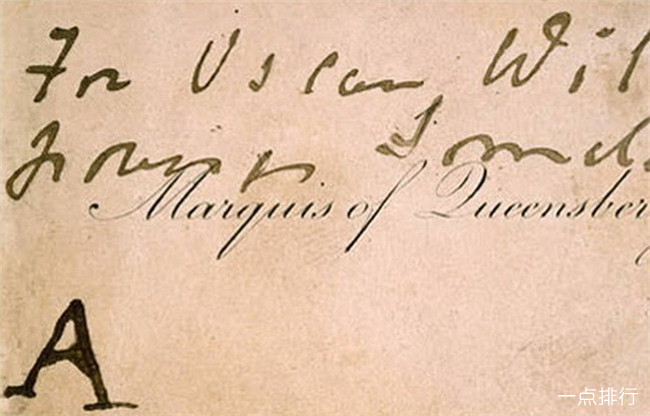 For Oscar Wil
posing Somd
Marquis of Queensber
A
一点排行